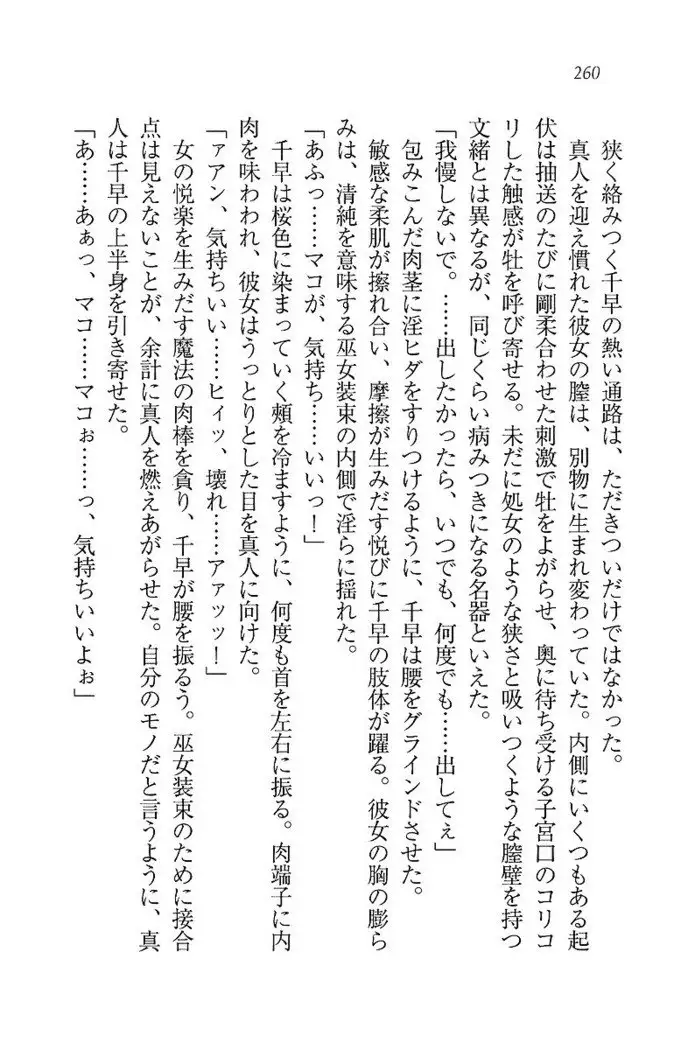 260
狭く絡みつく千早の熱い通路は、ただきついだけではなかった。
真人を迎え慣れた彼女の膣は、別物に生まれ変わっていた。内側にいくつもある起
伏は抽送のたびに剛柔合わせた刺激で牡をよがらせ、奥に待ち受ける子宮口のコリコ
リした触感が牡を呼び寄せる。未だに処女のような狭さと吸いつくような膣壁を持つ
文緒とは異なるが、同じくらい病みつきになる名器といえた。
「我慢しないで。……出したかったら、いつでも、何度でも……出してぇ」
包みこんだ肉茎に淫ヒダをすりつけるように、千早は腰をグラインドさせた。
敏感な柔肌が擦れ合い、摩擦が生みだす悦びに千早の肢体が躍る。彼女の胸の膨ら
みは、清純を意味する巫女装束の内側で淫らに揺れた。
「あふっ……マコが、気持ち……いいっ！」
千早は桜色に染まっていく頬を冷ますように、何度も首を左右に振る。肉端子に内
肉を味わわれ、彼女はうっとりとした目を真人に向けた。
「ァアン、気持ちいい……ヒィッ、壊れ……アァッッ！」
女の悦楽を生みだす魔法の肉棒を貪り、千早が腰を振るう。巫女装束のために接合
点は見えないことが、余計に真人を燃えあがらせた。自分のモノだと言うように、真
人は千早の上半身を引き寄せた。
「あ……あぁっ、マコ……マコぉ……っ、気持ちいいよぉ」